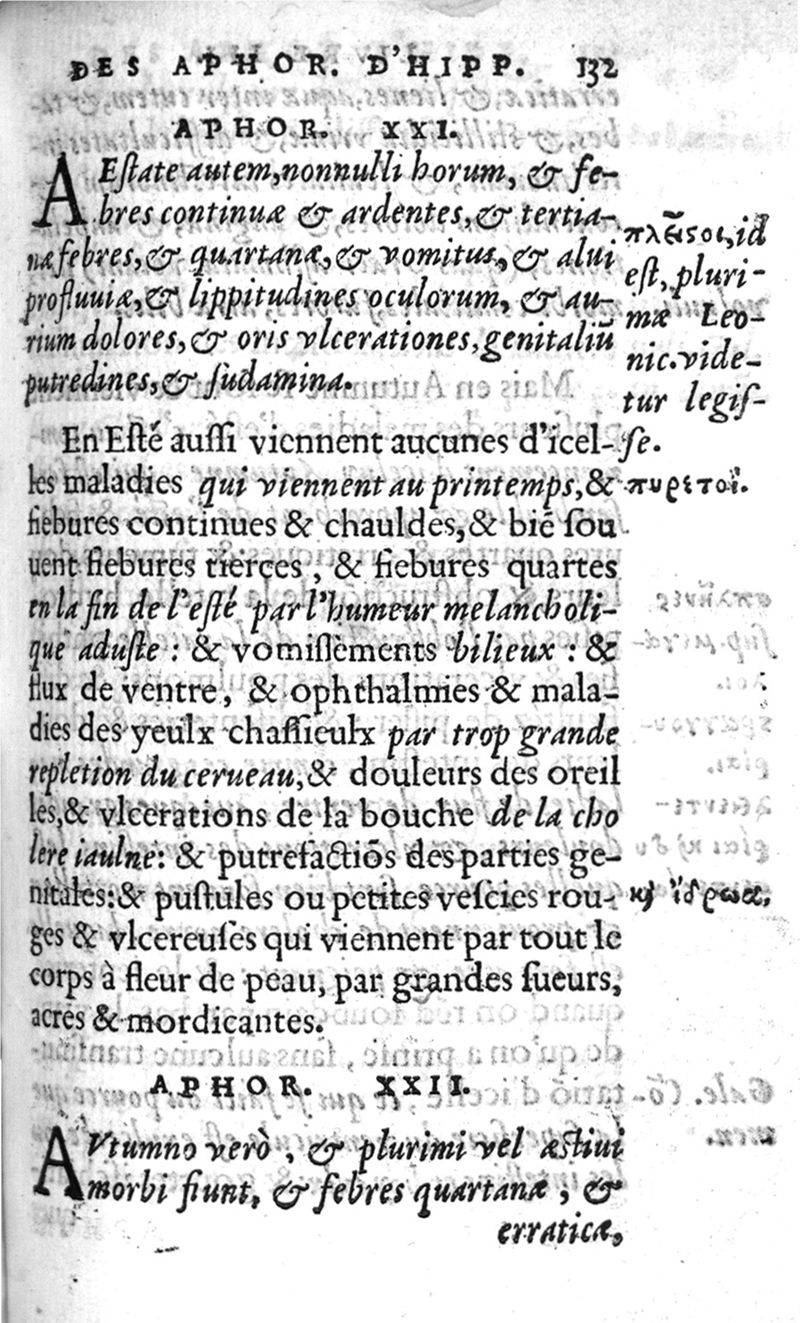 DES APHOR. D'HIPP. 132
APHOR. XXI.
AEſtate autem, nonnulli horum, & fe-
bres continuæ & ardentes, & tertia-
næ febres, & quartanæ, & vomitus, & alui
profluuiæ, & lippitudines oculorum, & au-
rium dolores, & oris vlcerationes, genitaliū
putredines, & ſudamina.
πλεῖϛοι, id
eſt, pluri-
mæ Leo-
nic. vide-
tur legiſ-
ſe.
En Eſté auſſi viennent aucunes d'icel-
les maladies qui viennent au printemps, &
πυρετοὶ.
fiebures continues & chauldes, & biē ſou
uent fiebures tierces, & fiebures quartes
en la fin de l'eſté par l'humeur melancholi-
que aduſte : & vomiſſements bilieux : &
flux de ventre, & ophthalmies & mala-
dies des yeulx chaſſieulx par trop grande
repletion du cerueau, & douleurs des oreil
les, & vlcerations de la bouche de la cho
lere iaulne : & putrefactiōs des parties ge-
nitales : & puſtules ou petites veſcies rou-
κὶ ἵδρωα.
ges & vlcereuſes qui viennent par tout le
corps à fleur de peau, par grandes ſueurs,
acres & mordicantes.
APHOR. XXII.
AVtumno verò, & plurimi vel æſtiui
morbi fiunt, & febres quartanæ, &
erraticæ,